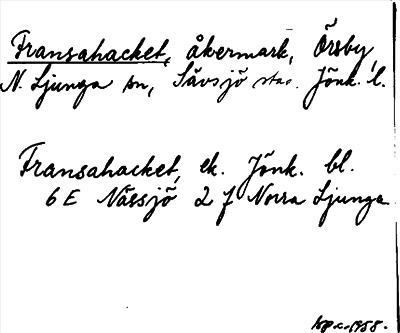 Fransahacket, åkermark, Örsby,
N. Ljunga sn, Sävsjö stad. Jönk. l.
Fransahacket, ek. Jönk. bl.
6 E Nässjö 2 f Norra Ljunga.
1958.